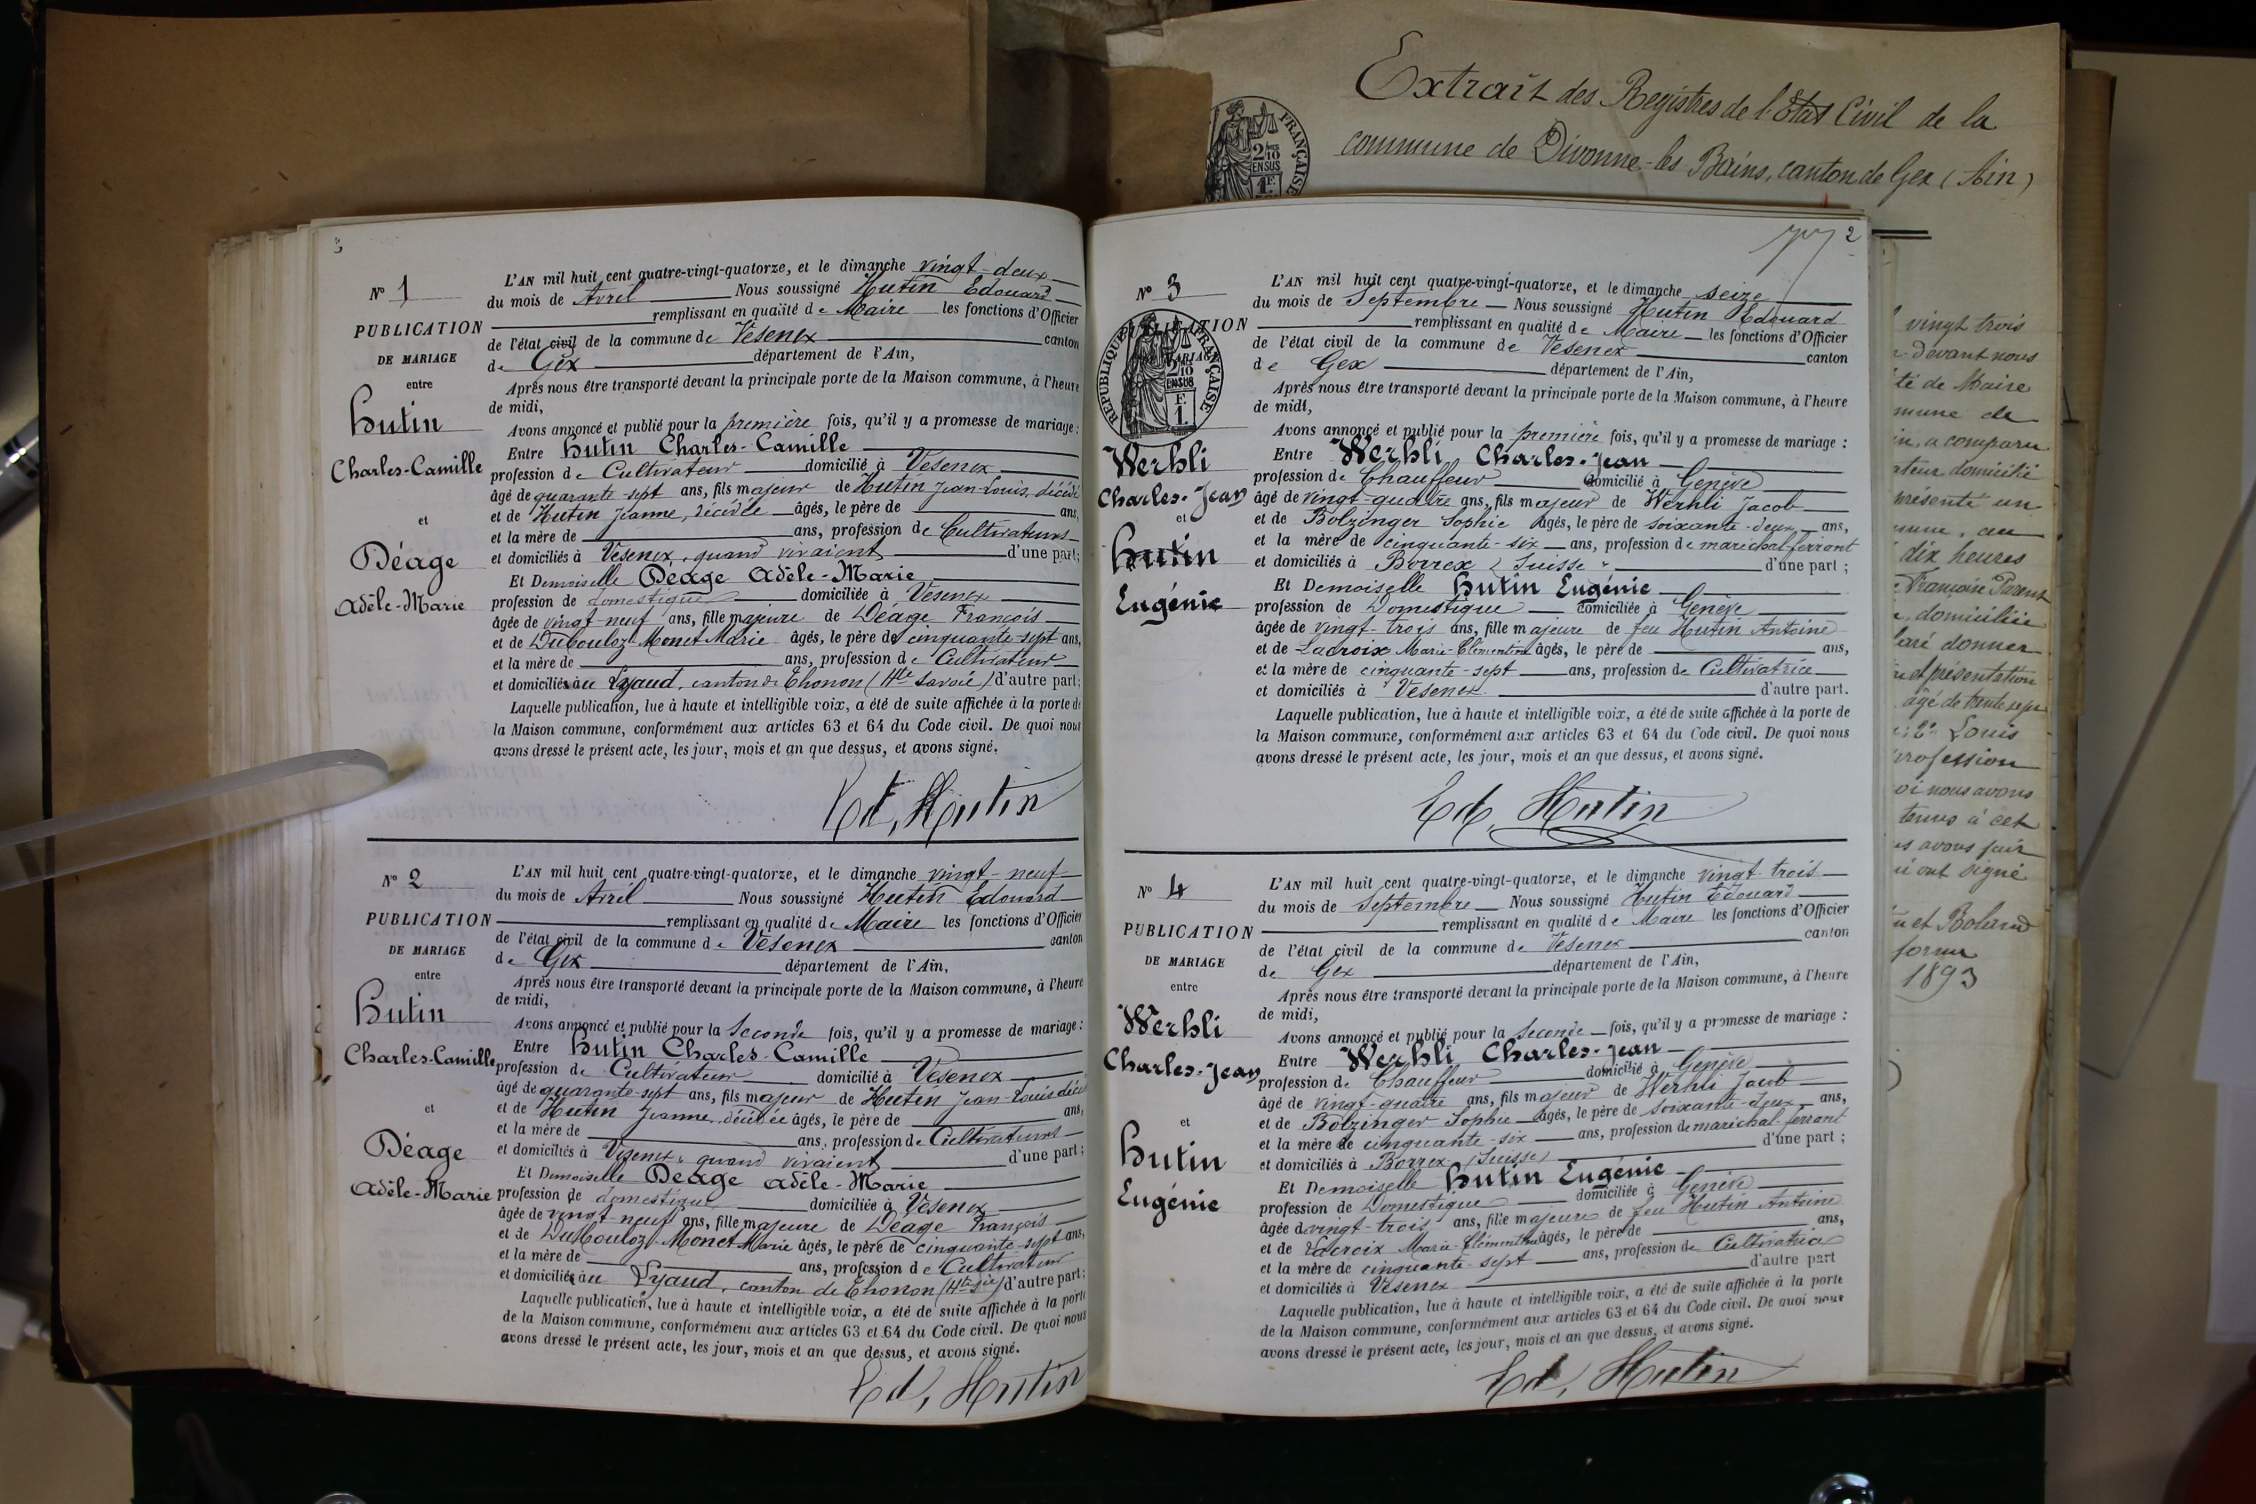 Extrait des Registres de l'État Civil de la
commune de Divonne-les-Bains, canton de Gex (Ain)
FRANÇAISE
2/10
EN SUS
1F
Nº 1
PUBLICATION
DE MARIAGE
entre
Hutin
Charles-Camille
et
Déage
Adèle-Marie
L'AN mil huit cent quatre-vingt-quatorze, et le dimanche vingt-deux
du mois de Avril Nous soussigné Hutin Edouard
remplissant en qualité de Maire les fonctions d'Officier
de l'état civil de la commune de Vesenex canton
de Gex département de l'Ain,
Après nous être transporté devant la principale porte de la Maison commune, à l'heure
de midi,
Avons annoncé et publié pour la première fois, qu'il y a promesse de mariage :
Entre Hutin Charles-Camille
profession de Cultivateur domicilié à Vesenex
âgé de quarante-sept ans, fils majeur de Hutin Jean-Louis, décédé
et de Hutin Jeanne, décédée âgés, le père de ans,
et la mère de ans, profession de Cultivateurs
et domiciliés à Vesenex, quand vivaient d'une part;
Et Demoiselle Déage Adèle-Marie
profession de domestique domiciliée à Vesenex
âgée de vingt-neuf ans, fille majeure de Déage François
et de Dubouloz-Monet Marie âgés, le père de cinquante-sept ans,
et la mère de ans, profession de Cultivateur
et domiciliés au Lyaud, canton de Thonon (Hte Savoie) d'autre part;
Laquelle publication, lue à haute et intelligible voix, a été de suite affichée à la porte de
la Maison commune, conformément aux articles 63 et 64 du Code civil. De quoi nous
avons dressé le présent acte, les jour, mois et an que dessus, et avons signé.
Ed. Hutin
Nº 2
PUBLICATION
DE MARIAGE
entre
Hutin
Charles-Camille
et
Déage
Adèle-Marie
L'AN mil huit cent quatre-vingt-quatorze, et le dimanche vingt-neuf
du mois de Avril Nous soussigné Hutin Edouard
remplissant en qualité de Maire les fonctions d'Officier
de l'état civil de la commune de Vesenex canton
de Gex département de l'Ain,
Après nous être transporté devant la principale porte de la Maison commune, à l'heure
de midi,
Avons annoncé et publié pour la Seconde fois, qu'il y a promesse de mariage :
Entre Hutin Charles-Camille
profession de Cultivateur domicilié à Vesenex
âgé de quarante-sept ans, fils majeur de Hutin Jean-Louis décé
et de Hutin Jeanne, décédée âgés, le père de ans,
et la mère de ans, profession de Cultivateurs
et domiciliés à Vesenex, quand vivaient d'une part;
Et Demoiselle Déage Adèle-Marie
profession de domestique domiciliée à Vesenex
âgée de vingt-neuf ans, fille majeure de Déage François
et de Dubouloz-Monet Marie âgés, le père de cinquante-sept ans,
et la mère de ans, profession de Cultivateur
et domiciliés au Lyaud, canton de Thonon (Hte Sie) d'autre part;
Laquelle publication, lue à haute et intelligible voix, a été de suite affichée à la porte
de la Maison commune, conformément aux articles 63 et 64 du Code civil. De quoi nous
avons dressé le présent acte, les jour, mois et an que dessus, et avons signé.
Ed. Hutin
2
Nº 3
PUBLICATION
RÉPUBLIQUE FRANÇAISE
2/10
EN SUS
F.
1.
Werhli
Charles-Jean
et
Hutin
Eugénie
L'AN mil huit cent quatre-vingt-quatorze, et le dimanche seize
du mois de Septembre Nous soussigné Hutin Edouard
remplissant en qualité de Maire les fonctions d'Officier
de l'état civil de la commune de Vesenex canton
de Gex département de l'Ain,
Après nous être transporté devant la principale porte de la Maison commune, à l'heure
de midi,
Avons annoncé et publié pour la première fois, qu'il y a promesse de mariage :
Entre Werhli Charles-Jean
profession de Chauffeur domicilié à Genève
âgé de vingt-quatre ans, fils majeur de Werhli Jacob
et de Bolzinger Sophie âgés, le père de soixante-deux ans,
et la mère de cinquante-six ans, profession de maréchal-ferrant
et domiciliés à Borrex (Suisse) d'une part ;
Et Demoiselle Hutin Eugénie
profession de Domestique domiciliée à Genève
âgée de vingt-trois ans, fille majeure de feu Hutin Antoine
et de Lacroix Marie-Clémentine âgés, le père de ans,
et la mère de cinquante-sept ans, profession de Cultivatrice
et domiciliés à Vesenex d'autre part.
Laquelle publication, lue à haute et intelligible voix, a été de suite affichée à la porte de
la Maison commune, conformément aux articles 63 et 64 du Code civil. De quoi nous
avons dressé le présent acte, les jour, mois et an que dessus, et avons signé.
Ed. Hutin
Nº 4
PUBLICATION
DE MARIAGE
entre
Werhli
Charles-Jean
et
Hutin
Eugénie
L'AN mil huit cent quatre-vingt-quatorze, et le dimanche vingt-trois
du mois de Septembre Nous soussigné Hutin Edouard
remplissant en qualité de Maire les fonctions d'Officier
de l'état civil de la commune de Vesenex canton
de Gex département de l'Ain,
Après nous être transporté devant la principale porte de la Maison commune, à l'heure
de midi,
Avons annoncé et publié pour la Seconde fois, qu'il y a promesse de mariage :
Entre Werhli Charles-Jean
profession de Chauffeur domicilié à Genève
âgé de vingt-quatre ans, fils majeur de Werhli Jacob
et de Bolzinger Sophie âgés, le père de soixante-deux ans,
et la mère de cinquante-six ans, profession de maréchal-ferrant
et domiciliés à Borrex (Suisse) d'une part ;
Et Demoiselle Hutin Eugénie
profession de Domestique domiciliée à Genève
âgée de vingt-trois ans, fille majeure de feu Hutin Antoine
et de Lacroix Marie-Clémentine âgés, le père de ans,
et la mère de cinquante-sept ans, profession de Cultivatrice
et domiciliés à Vesenex d'autre part
Laquelle publication, lue à haute et intelligible voix, a été de suite affichée à la porte
de la Maison commune, conformément aux articles 63 et 64 du Code civil. De quoi nous
avons dressé le présent acte, les jour, mois et an que dessus, et avons signé.
Ed. Hutin
vingt trois
devant nous
té de Maire
mune de
in, a comparu
ateur domicilié
présenté un
mme, au
dix heures
Françoise Parent
domiciliée
laré donner
et présentation
âgé de trente sept
2º Louis
profession
oi nous avons
tenus à cet
s avons fair
ui ont signé
et Boland
forme
1893